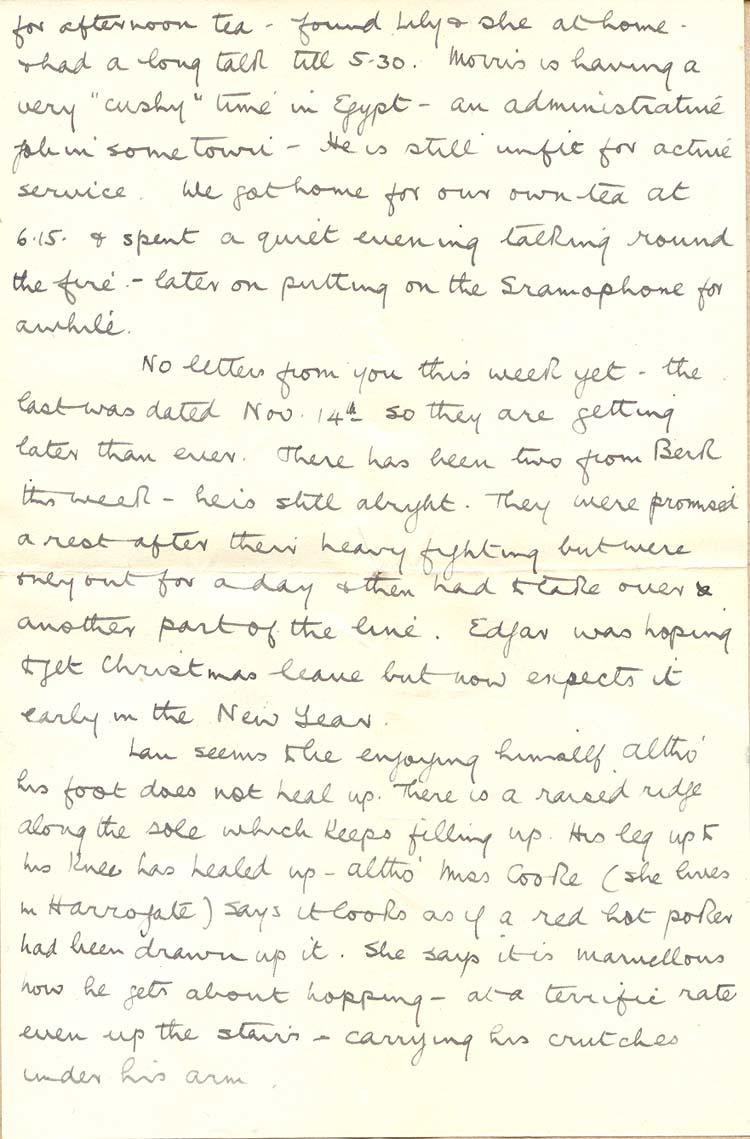 for afternoon tea - found Lily & she at home -
& had a long talk till 5-30. Morris is having a
very "cushy" time in Egypt - an administrative
job in some town - He is still unfit for active
service. We got home for our own tea at
6.15. & spent a quiet evening talking round
the fire - later on putting on the Gramophone for
awhile.
No letters from you this week yet - the
last was dated Nov. 14th so they are getting
later than ever. There has been two from Bert
this week - he is still alright. They were promised
a rest after their heavy fighting but were
only out for a day & then had to take over
another part of the line. Edgar was hoping
to get Christmas leave but now expects it
early in the New Year.
Lau seems to be enjoying himself altho'
his foot does not heal up. There is a raised ridge
along the sole which keeps filling up. His leg up to
his knee has healed up - altho' Miss Cooke (she lives
in Harrogate) says it looks as if a red hot poker
had been drawn up it. She says it is marvellous
how he gets about hopping - at a terrific rate
even up the stairs - carrying his crutches
under his arm.